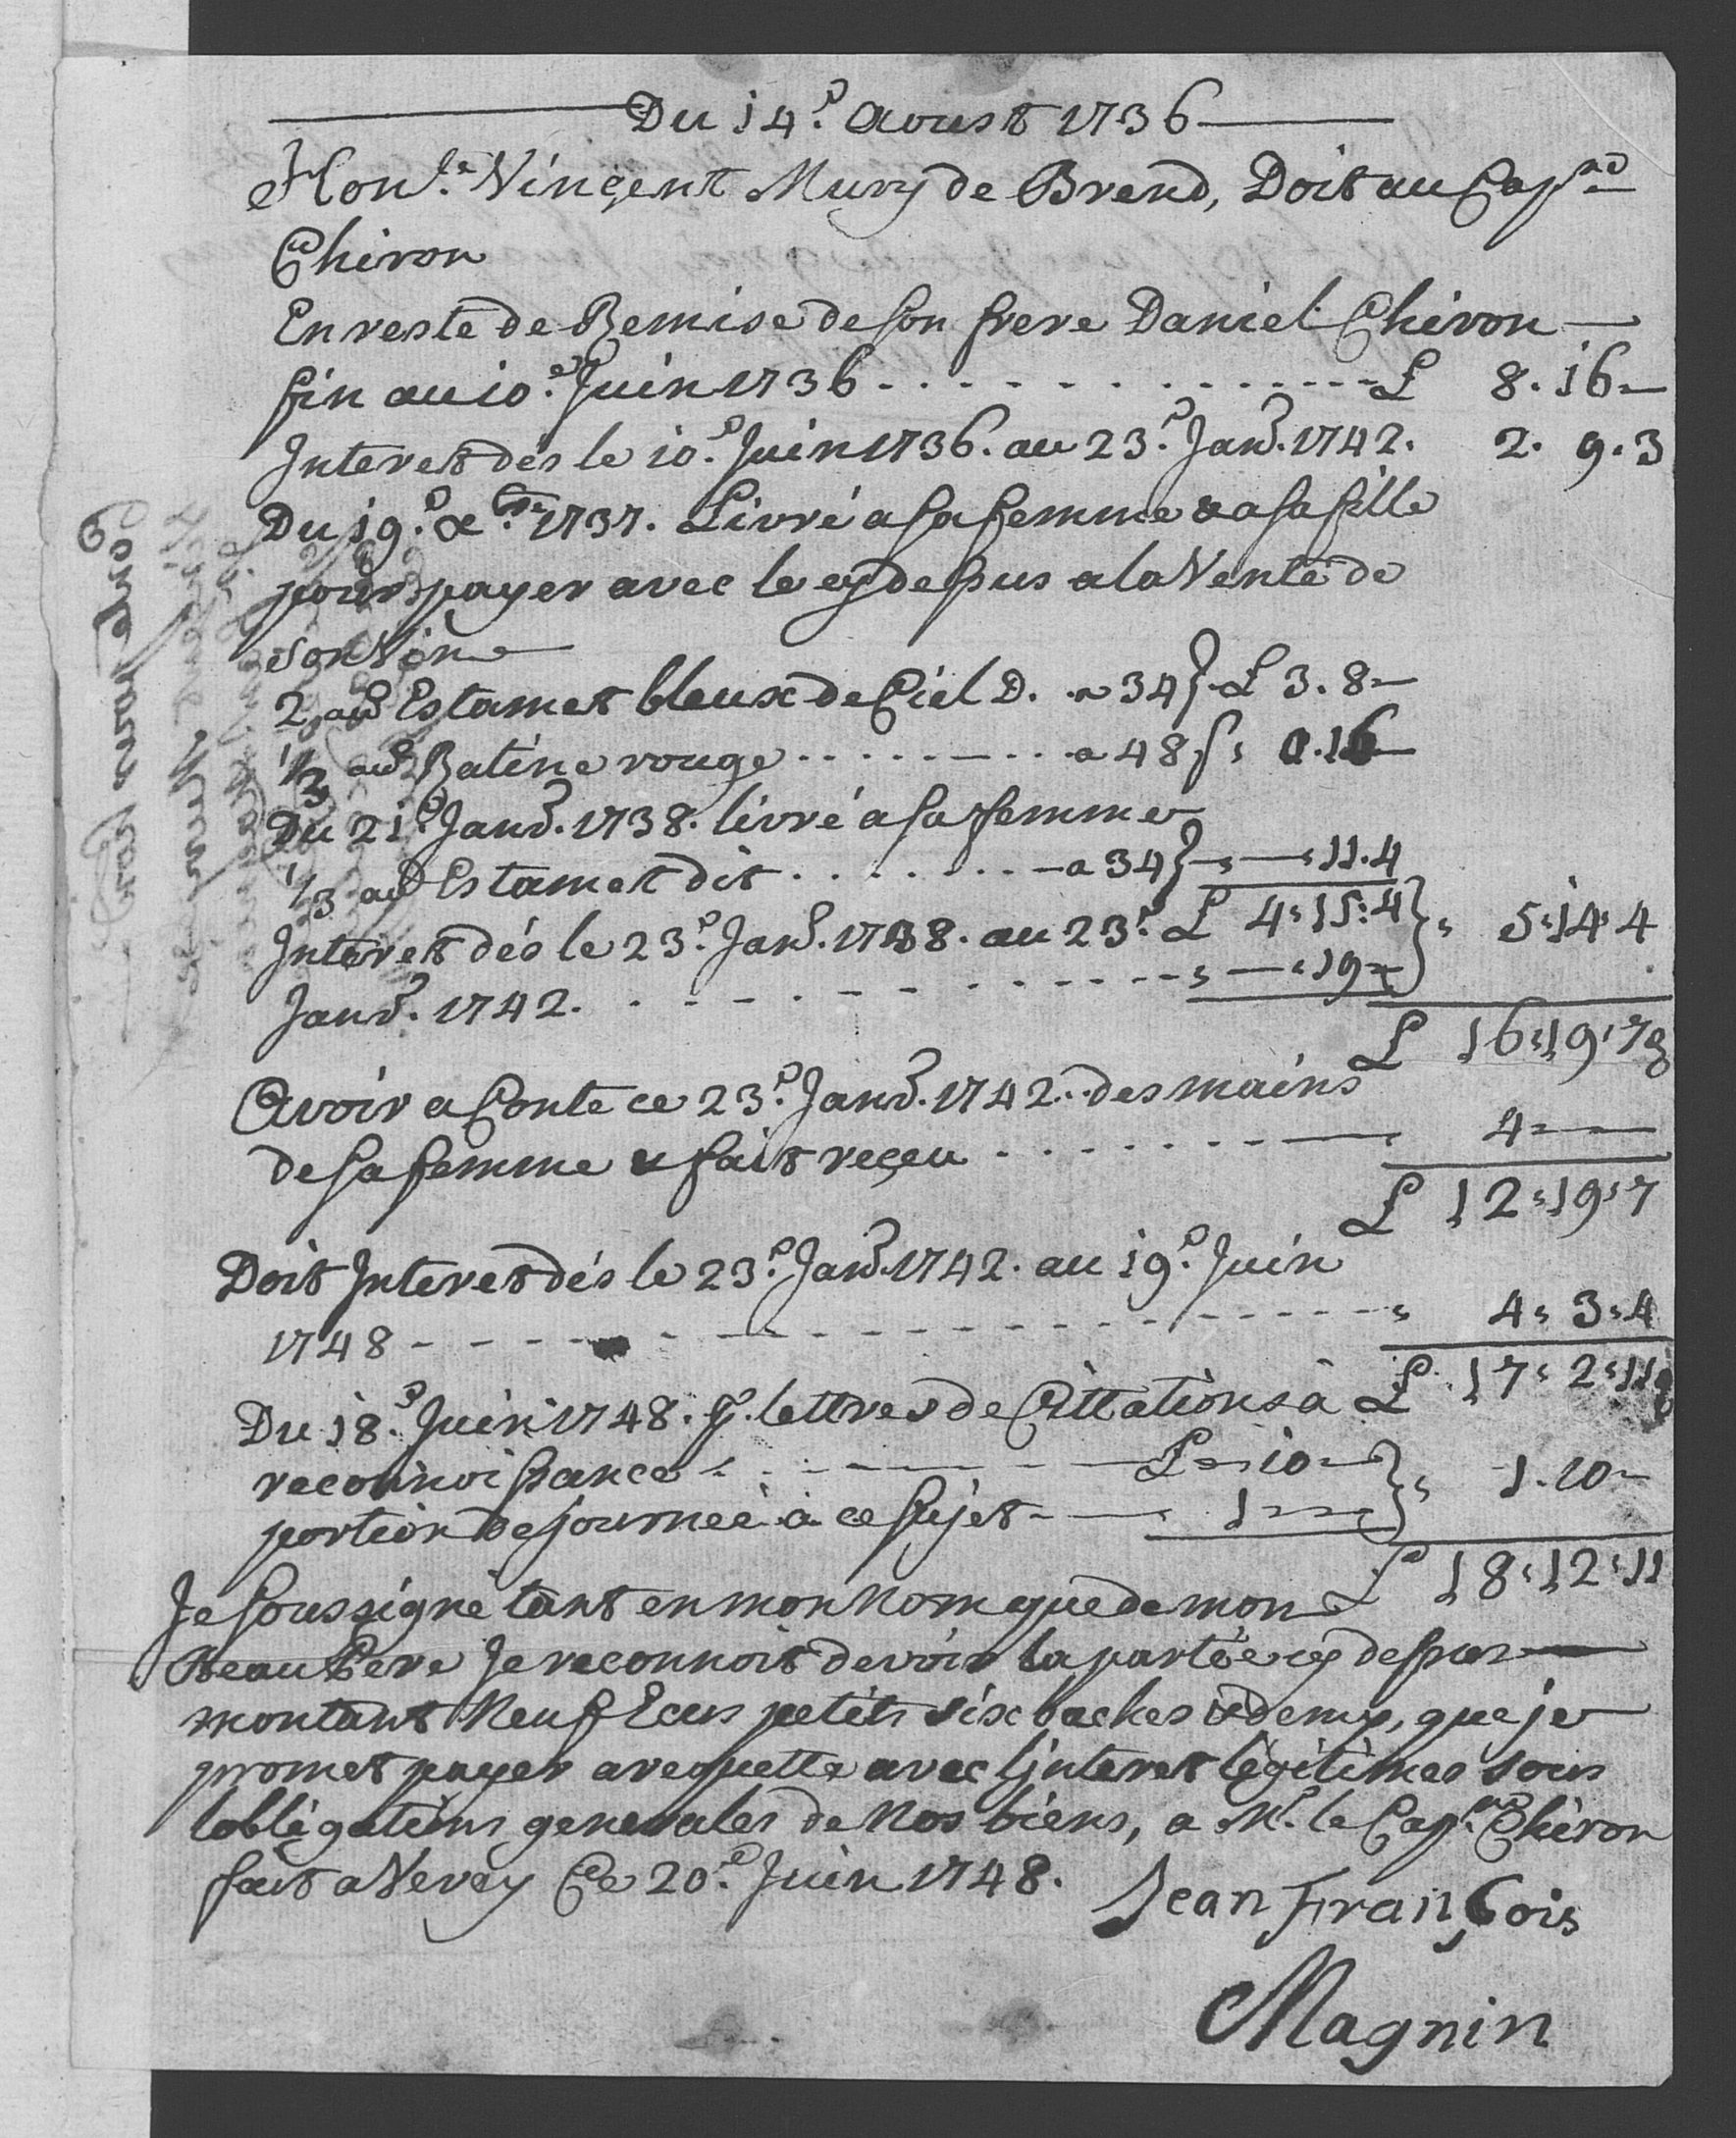 Du 14.e Aoust 1736
Hon.le Vinçent Mury de Brend, Doit au Cap.ne
Chiron
En reste de Remise de son frere Daniel Chiron —
fin au 10.e Juin 1736 . . . . . . . . £ 8. 16 —
Interet dès le 10.e Juin 1736. au 23.e Janv. 1742. 2. 9. 3
Du 19.e Xbre 1737. Livré a sa femme & a sa fille
pour payer avec le cy dessus a la Vente de
son Vin
2 au. Estamet bleux de Ciel D. a 34 } £ 3. 8 —
1/3 au. Ratine rouge . . . . . . . a 48 s, 0. 16 —
Du 21.e Janv. 1738. livré a sa femme
1/3 au. Estamet dit . . . . . . . a 34 } — 11. 4
£ 4: 15: 4
Interet dés le 23.e Janv. 1738. au 23.e } 5: 14: 4
Janv. 1742. . . . . . . . . . — 19 —
£ 16: 19: 7
Avoir a Conte ce 23.e Janv. 1742. des mains
de sa femme & fait reçeu . . . . . . . 4 —
£ 12: 19: 7
Doit Interet dés le 23.e Janv. 1742. au 19.e Juin
1748 - - - - - - - - - 4: 3: 4
£ 17: 2: 11
Du 18.e Juin 1748. p. lettres de Cittations à
reconnoissance . . . . £ — 10 — } 1. 10 —
portion de journeé à ce sujet - — 1 —
£ 18: 12: 11
Je soussigné tant en mon Nom que de mon
Beau Pere Je reconnoit devoir la partie cy dessus
montant Neuf Ecus petits six baches & demy, que je
promet payer a requette avec l'jnteret légitimes sous
l'obligations generales de Nos biens, a Mr. le Cap.ne Chiron
fait a Vevey Ce 20.e Juin 1748.
Jean François
Magnin